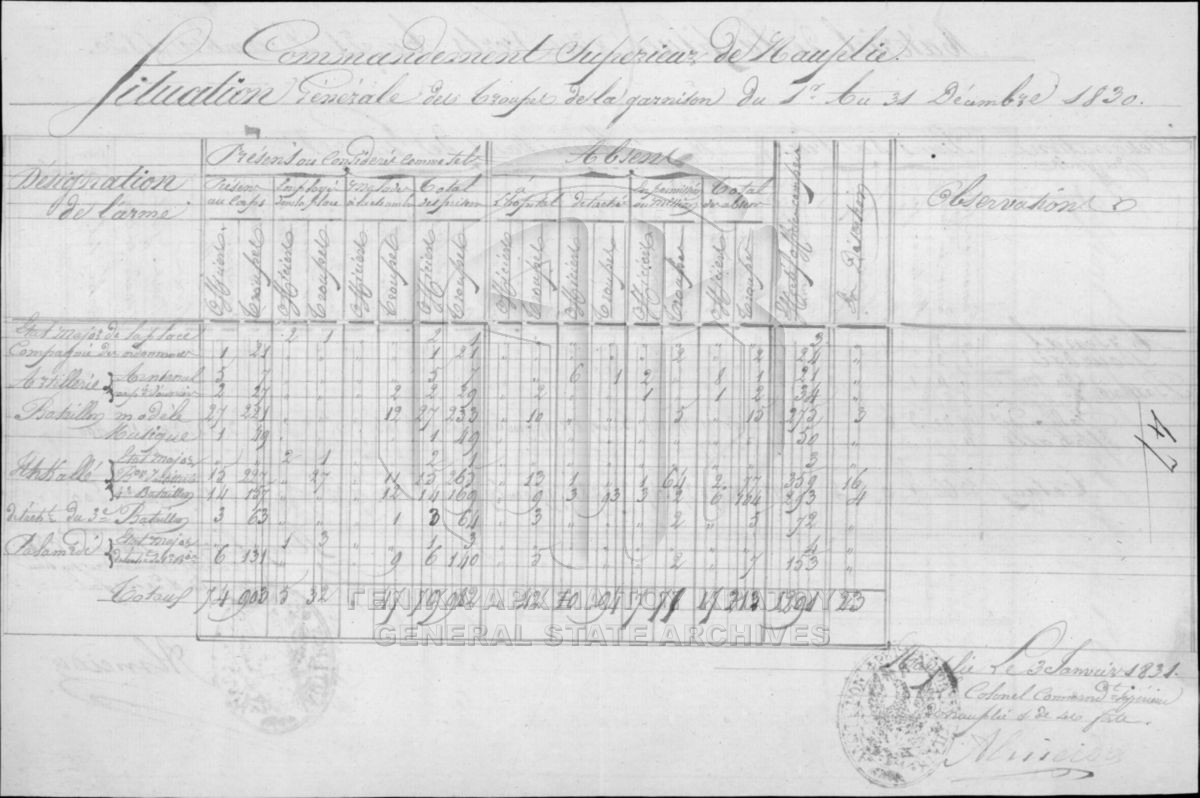 Commandement Supérieur de Nauplie.
Situation Générale des troupes de la garnison du 1er Au 31 Décembre 1830.
Désignation de l'arme
Présens ou Considérés comme tels
Absens
Observations
Présens au corps
Employé dans la place
Malades à la chambre
Total des présens
à l'hôpital
détachés
en permission ou mission
Total des absens
Officiers Troupes Officiers Troupes Officiers Troupes Officiers Troupes Officiers Troupes Officiers Troupes Officiers Troupes Officiers Troupes
En Détention
Etat major de la place " " 2 1 " " 2 1 3
Compagnie des 1 21 " " " " 1 21 2 2 24
Artillerie Arsenal 5 7 5 7 6 1 2 8 1 21
2 27 2 2 29 2 1 1 2 34
Bataillon modèle 27 221 12 27 233 10 5 15 275 3
Musique 1 49 1 49 50
Itskallé Etat major 2 1 2 1 3
15 227 27 11 15 265 13 1 1 1 64 2 77 359 16
1er Bataillon 14 157 12 14 169 9 3 93 3 2 6 104 293 4
détacht du 3e Bataillon 3 63 1 3 64 3 2 5 72
Palamède Etat major 1 3 1 3 4
6 131 9 6 140 5 2 7 153
Totaux 74 903 5 32 79 17 1291 23
47
ΓΕΝΙΚΑ ΑΡΧΕΙΑ ΤΟΥ ΚΡΑΤΟΥΣ
GENERAL STATE ARCHIVES
Nauplie Le 3 Janvier 1831.
Colonel Commandt Supérieur
Nauplie & de ses forts.
Almeida